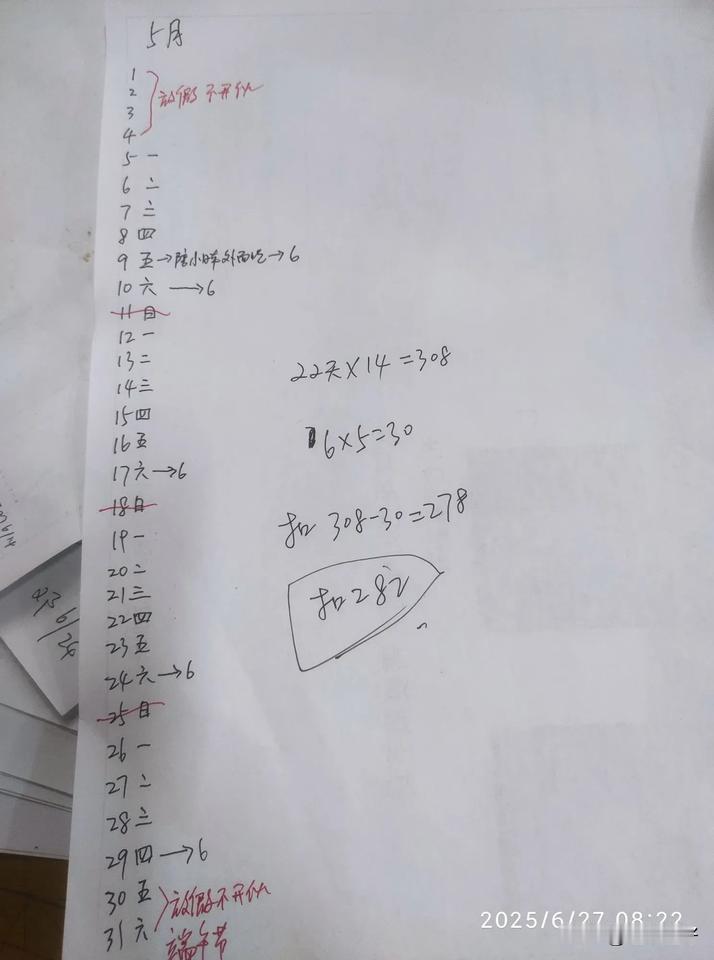 5月
1
2 放假不开伙
3
4
5 一
6 二
7 三
8 四
9 五→陪小军外面吃→6
10 六 →6
11 日
12 一
13 二
14 三
15 四
16 五
17 六→6
18 日
19 一
20 二
21 三
22 四
23 五
24 六→6
25 日
26 一
27 二
28 三
29 四→6
30 五 放假不开伙
31 六 端午节
22天×14=308
6×5=30
扣 308-30=278
扣28
2025/6/27 08:22